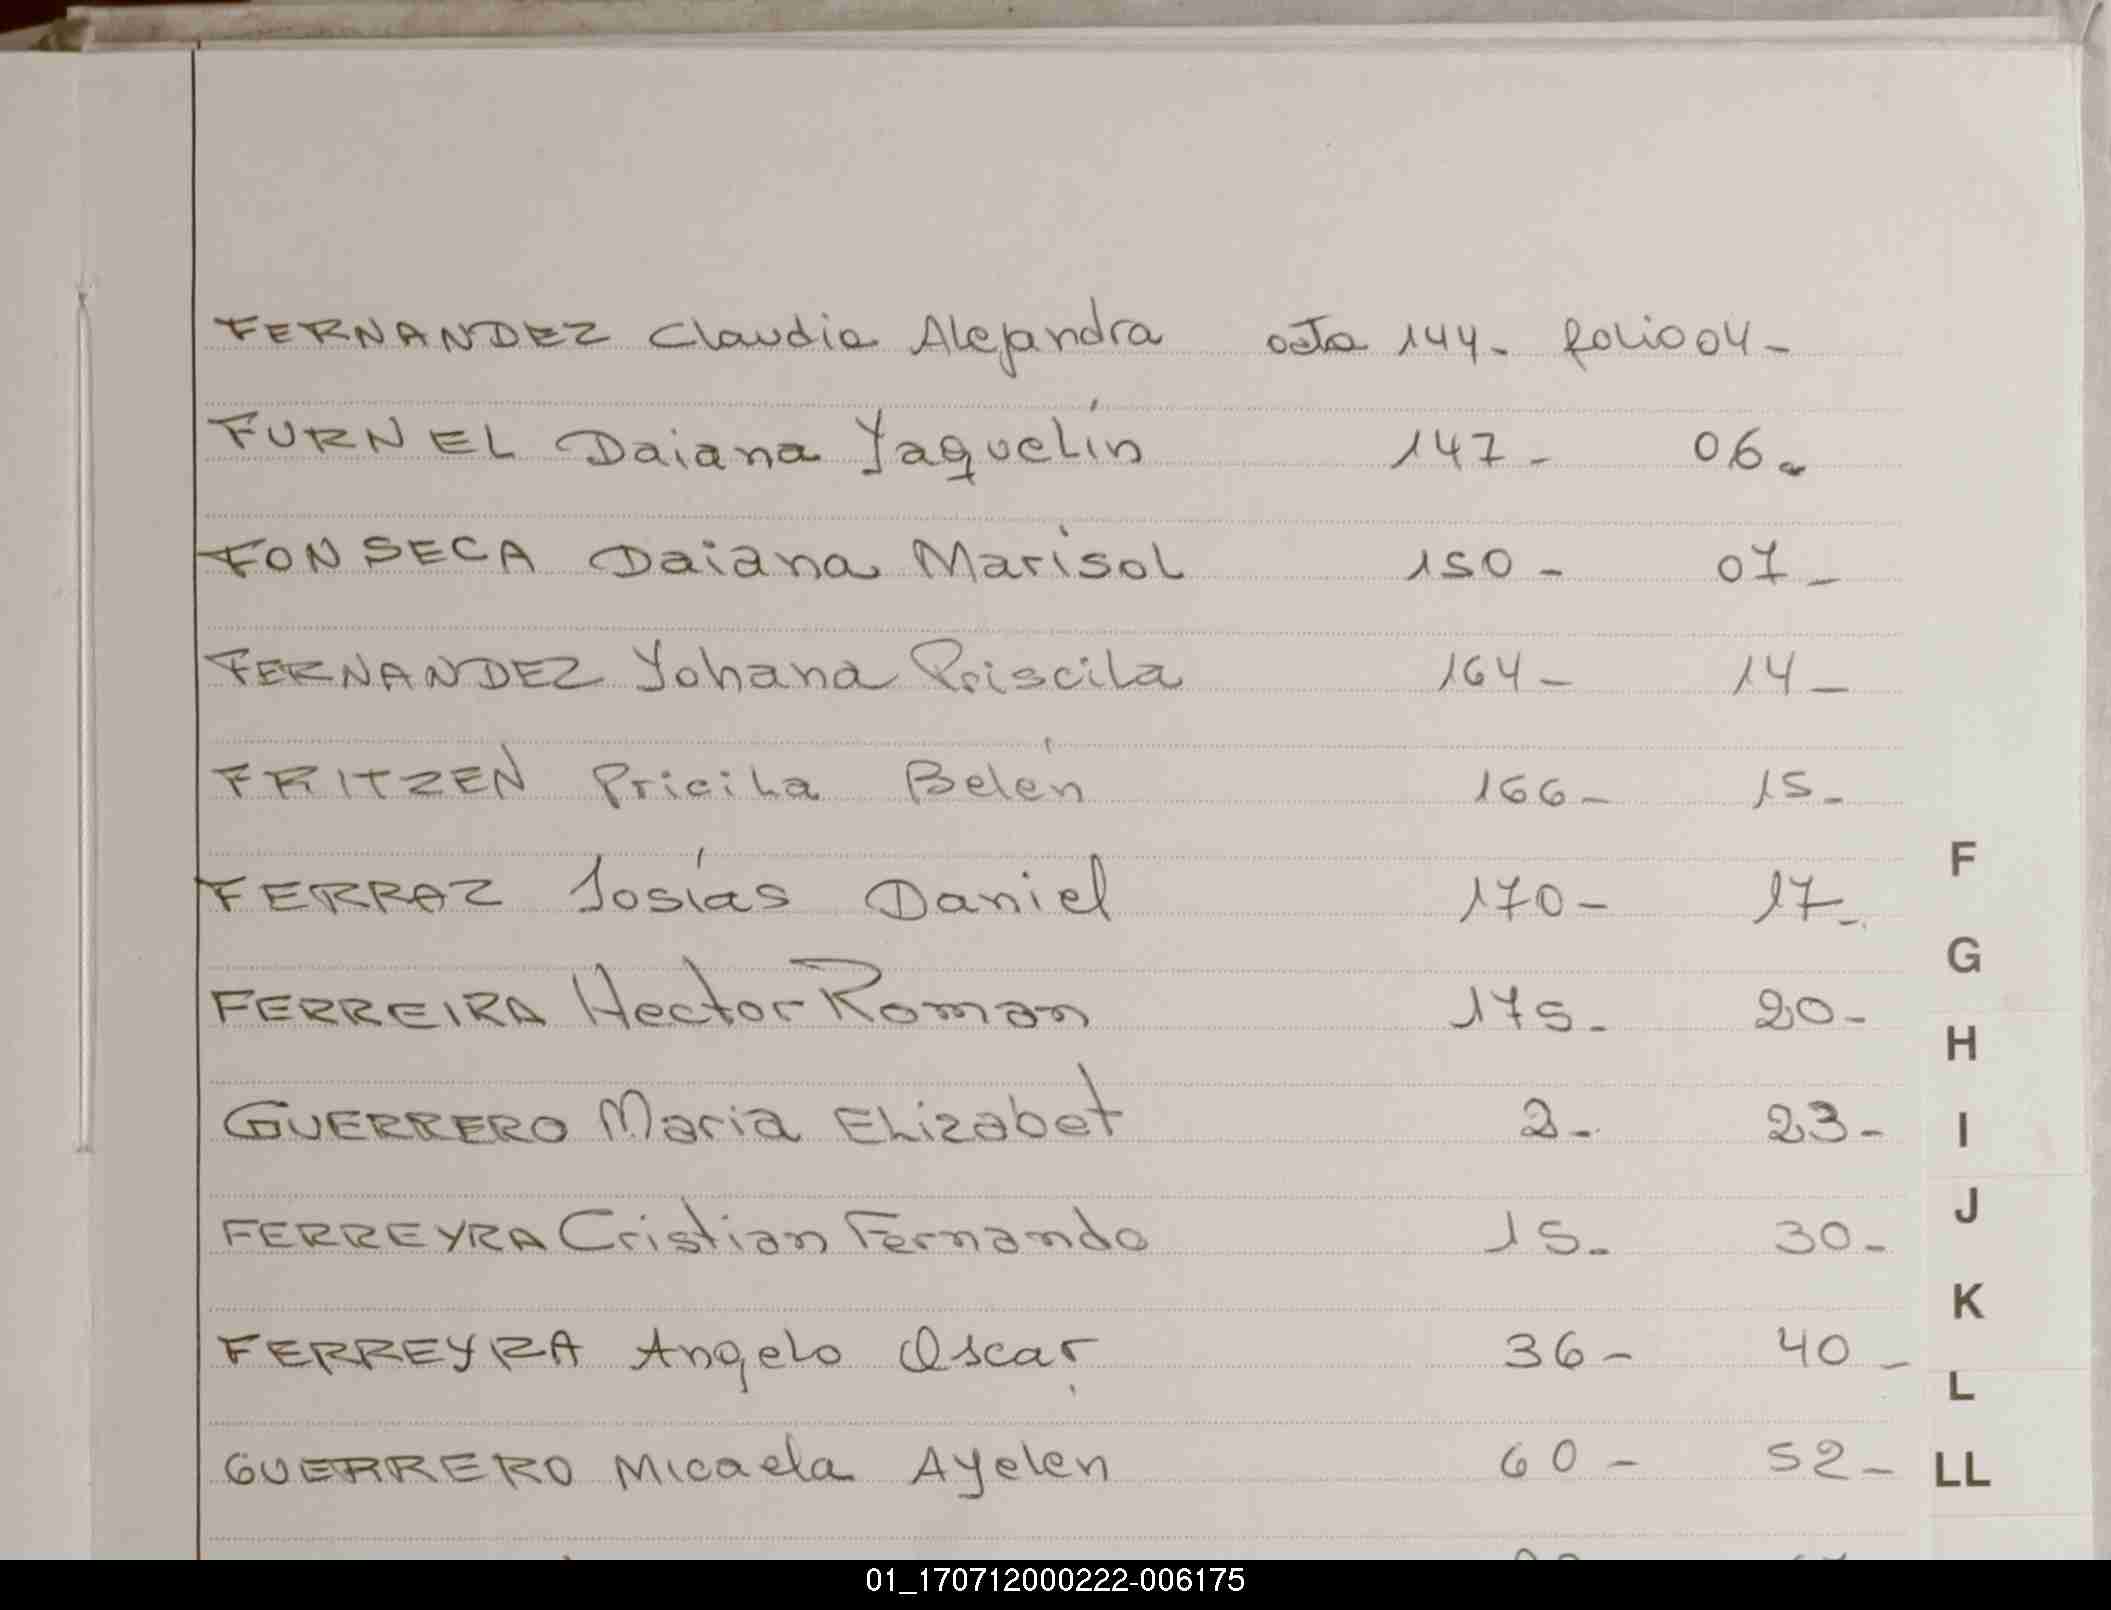 FERNANDEZ Claudia Alejandra acta 144- folio 04-
FURNEL Daiana Yaquelín 147- 06-
FONSECA Daiana Marisol 150- 07-
FERNANDEZ Yohana Priscila 164- 14-
FRITZEN Pricila Belén 166- 15-
F
FERRAZ Josías Daniel 170- 17-
G
FERREIRA Hector Roman 175- 20-
H
GUERRERO Maria Elizabet 2- 23-
I
J
FERREYRA Cristian Fernando 15- 30-
K
FERREYRA Angelo Oscar 36- 40-
L
GUERRERO Micaela Ayelen 60- 52-
LL
01_170712000222-006175